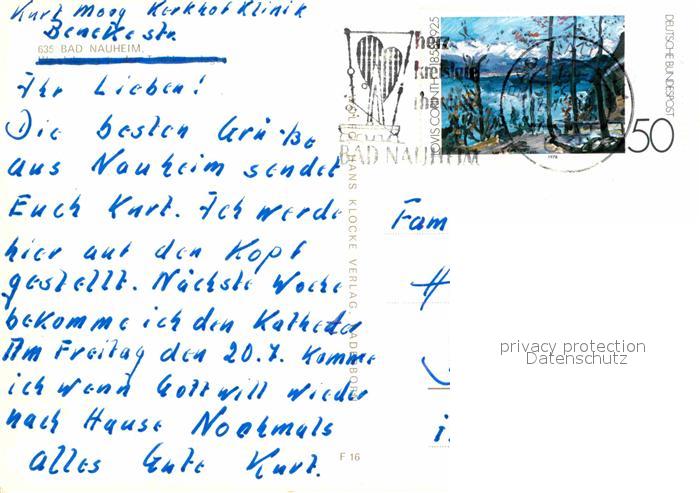 Kurt Moog Kerkhof Klinik
Beneke str.
635 BAD NAUHEIM,
Ihr Lieben!
Die besten Grüße
aus Nauheim sendet
Euch Kurt. Ich werde
hier auf den Kopf
gestellt. Nächste Woche
bekomme ich den Katheter
Am Freitag den 20.7. komme
ich wenn Gott will wieder
nach Hause Nochmals
alles Gute Kurt.
F 16
HANS KLOCKE VERLAG, PADERBORN
herz
BAD NAUHEIM
LOVIS CORINTH 1858-1925
1978
DEUTSCHE BUNDESPOST
50
Fam
H
i.
privacy protection
Datenschutz